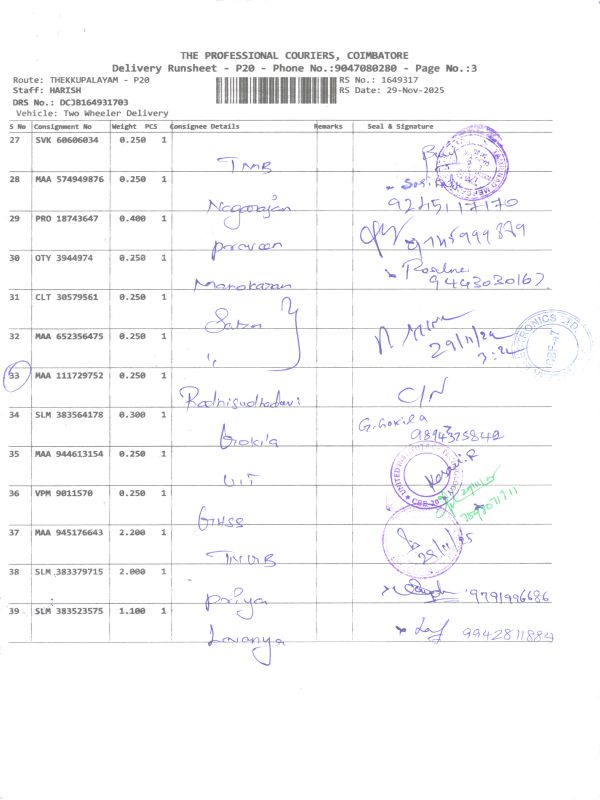 THE PROFESSIONAL COURIERS, COIMBATORE
Delivery Runsheet - P20 - Phone No.:9047080280 - Page No.:3
Route: THEKKUPALAYAM - P20 RS No.: 1649317
Staff: HARISH RS Date: 29-Nov-2025
DRS No.: DCJB164931703
Vehicle: Two Wheeler Delivery
S No Consignment No Weight PCS Consignee Details Remarks Seal & Signature
27 SVK 60606034 0.250 1
TMB
28 MAA 574949876 0.250 1
Nagarajan 9245117170
29 PRO 18743647 0.400 1
praveen 9145999879
30 OTY 3944974 0.250 1
Manokaran 9443030167
31 CLT 30579561 0.250 1
32 MAA 652356475 0.250 1
33 MAA 111729752 0.250 1
C/N
34 SLM 383564178 0.300 1
G. Gokila
Gokila 9894375842
35 MAA 944613154 0.250 1
UIT
36 VPM 9011570 0.250 1
GHSS
37 MAA 945176643 2.200 1
29/11/25
38 SLM 383379715 2.000 1
priya 9791996686
39 SLM 383523575 1.100 1
Lavanya 9942811884